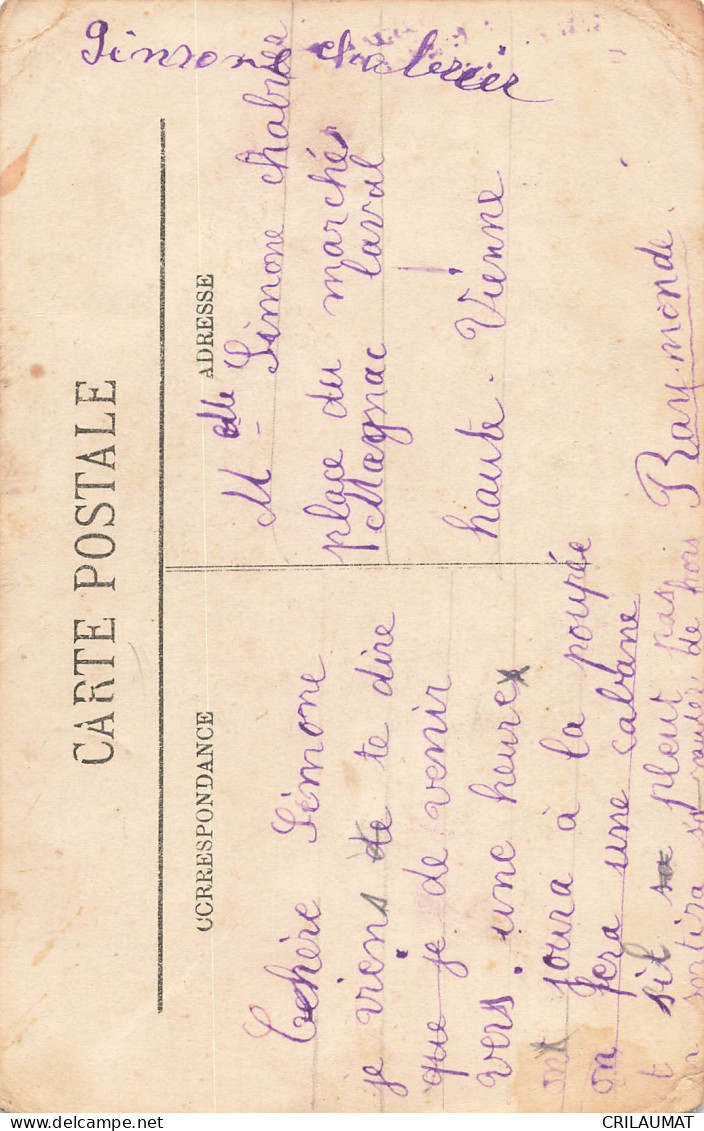 Simone chabrier
CARTE POSTALE
CORRESPONDANCE
ADRESSE
Chère Simone
je viens de te dire
que je de venir
vers une heure
ont joura à la poupée
on fera une cabane
et sil pleut pas
on sortira de hors
Raymonde.
Melle Simone chabrier
place du marché
Magnac laval
haute-Vienne
CRILAUMAT